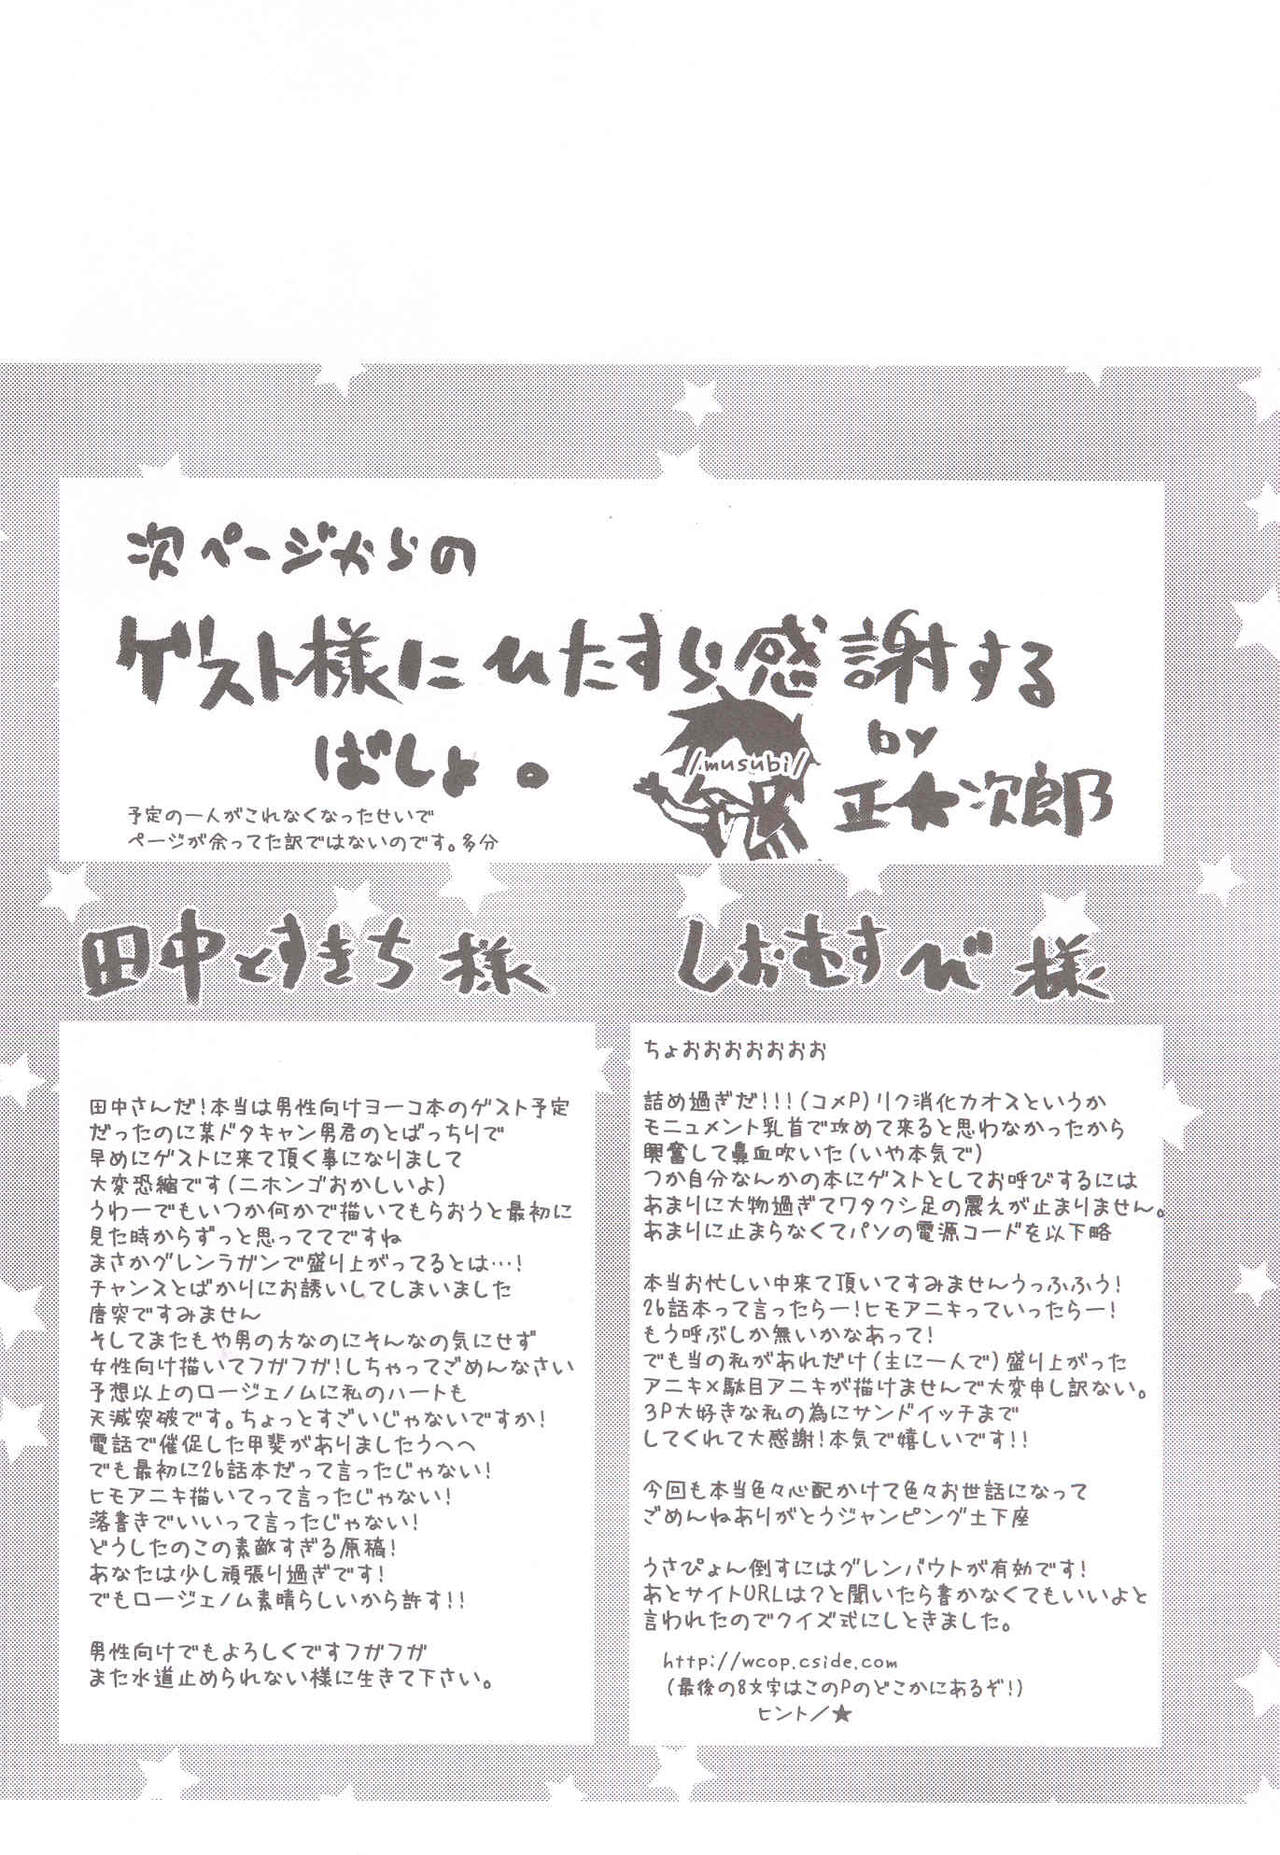 次ページからの
ゲスト様にひたすら感謝する
ばしょ。
by
正★次郎
/musubi/
予定の一人がこれなくなったせいで
ページが余ってた訳ではないのです。多分
田中とすきち様
田中さんだ!本当は男性向けヨーコ本のゲスト予定
だったのに某ドタキャン男君のとばっちりで
早めにゲストに来て頂く事になりまして
大変恐縮です(ニホンゴおかしいよ)
うわーでもいつか何かで描いてもらおうと最初に
見た時からずっと思っててですね
まさかグレンラガンで盛り上がってるとは…!
チャンスとばかりにお誘いしてしまいました
唐突ですみません
そしてまたもや男の方なのにそんなの気にせず
女性向け描いてフガフガ!しちゃってごめんなさい
予想以上のロージェノムに私のハートも
天減突破です。ちょっとすごいじゃないですか!
電話で催促した甲斐がありましたうへへ
でも最初に26話本だって言ったじゃない!
ヒモアニキ描いてって言ったじゃない!
落書きでいいって言ったじゃない!
どうしたのこの素敵すぎる原稿!
あなたは少し頑張り過ぎです!
でもロージェノム素晴らしいから許す!!
男性向けでもよろしくですフガフガ
また水道止められない様に生きて下さい。
しおむすび様
ちょおおおおおおお
詰め過ぎだ!!!(コメP)リク消化カオスというか
モニュメント乳首で攻めて来ると思わなかったから
興奮して鼻血吹いた(いや本気で)
つか自分なんかの本にゲストとしてお呼びするには
あまりに大物過ぎてワタクシ足の震えが止まりません。
あまりに止まらなくてパソの電源コードを以下略
本当お忙しい中来て頂いてすみませんうっふふう!
26話本って言ったらー!ヒモアニキっていったらー!
もう呼ぶしか無いかなあって!
でも当の私があれだけ(主に一人で)盛り上がった
アニキ×駄目アニキが描けませんで大変申し訳ない。
3P大好きな私の為にサンドイッチまで
してくれて大感謝!本気で嬉しいです!!
今回も本当色々心配かけて色々お世話になって
ごめんねありがとうジャンピング土下座
うさぴょん倒すにはグレンバウトが有効です!
あとサイトURLは?と聞いたら書かなくてもいいよと
言われたのでクイズ式にしときました。
http://wcop.cside.com
(最後の8文字はこのPのどこかにあるぞ!)
ヒント/★